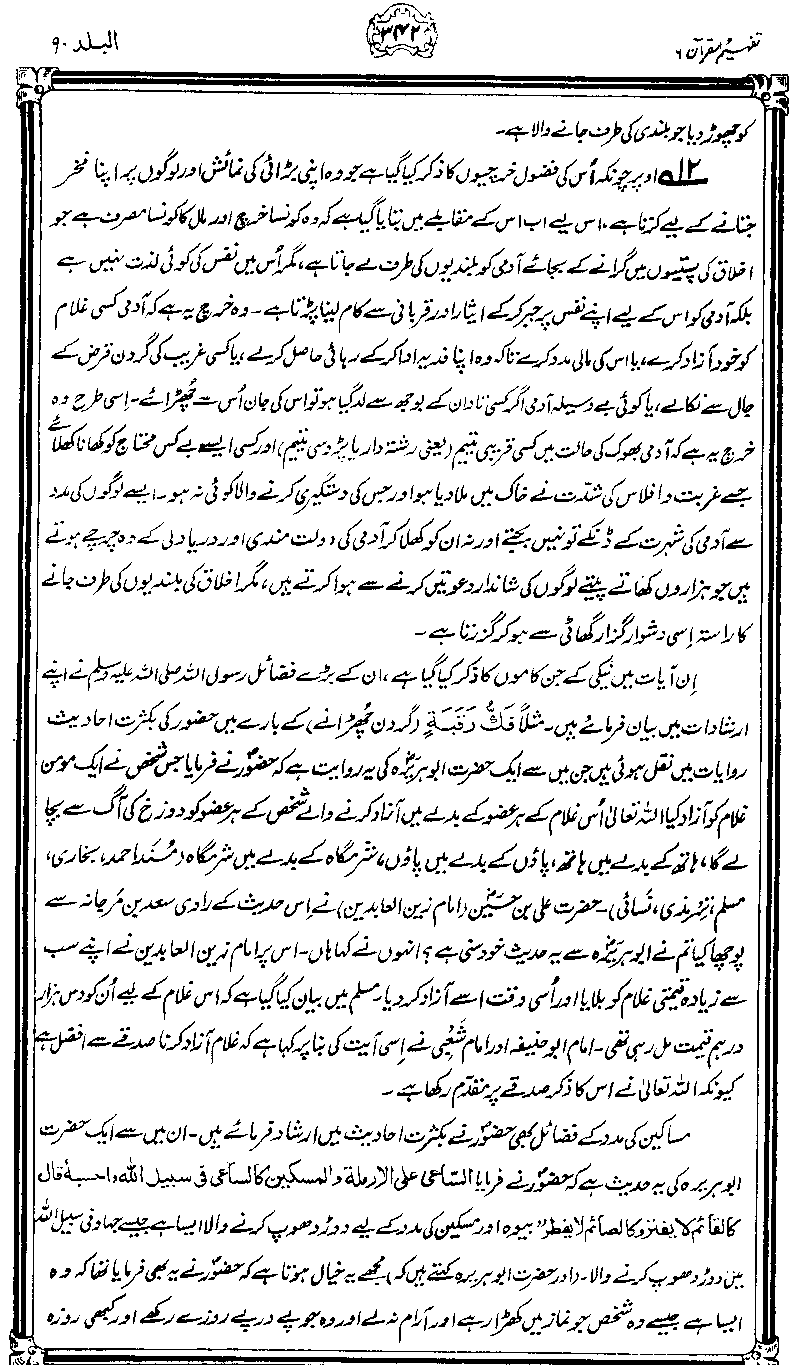 تفہیم القرآن ۶
۳۴۲
البلد ۹۰
کو چھوڑ دیا جو بلندی کی طرف جانے والا ہے۔
۱۲؎ اوپر چونکہ اُس کی فضول خرچیوں کا ذکر کیا گیا ہے جو وہ اپنی بڑائی کی نمائش اور لوگوں پر اپنا فخر
جتانے کے لیے کرتا ہے، اس لیے اب اس کے مقابلے میں بتایا گیا ہے کہ وہ کونسا خرچ اور مال کا کونسا مصرف ہے جو
اخلاق کی پستیوں میں گرانے کے بجائے آدمی کو بلندیوں کی طرف لے جاتا ہے، مگر اُس میں نفس کی کوئی لذت نہیں ہے
بلکہ آدمی کو اس کے لیے اپنے نفس پر جبر کر کے ایثار اور قربانی سے کام لینا پڑتا ہے۔ وہ خرچ یہ ہے کہ آدمی کسی غلام
کو خود آزاد کرے، یا اس کی مالی مدد کرے تاکہ وہ اپنا فدیہ ادا کر کے رہائی حاصل کرلے، یا کسی غریب کی گردن قرض کے
جال سے نکالے، یا کوئی بے وسیلہ آدمی اگر کسی تاوان کے بوجھ سے لد گیا ہو تو اس کی جان اُس سے چُھڑائے۔ اِسی طرح وہ
خرچ یہ ہے کہ آدمی بھوک کی حالت میں کسی قریبی یتیم (یعنی رشتہ دار یا پڑوسی یتیم) اور کسی ایسے بے کس محتاج کو کھانا کھلائے
جسے غربت و افلاس کی شدّت نے خاک میں ملا دیا ہو اور جس کی دستگیری کرنے والا کوئی نہ ہو۔ ایسے لوگوں کی مدد
سے آدمی کی شہرت کے ڈنکے تو نہیں بجتے اور نہ ان کو کھلا کر آدمی کی دولت مندی اور دریا دلی کے وہ چرچے ہوتے
ہیں جو ہزاروں کھاتے پیتے لوگوں کی شاندار دعوتیں کرنے سے ہوا کرتے ہیں، مگر اخلاق کی بلندیوں کی طرف جانے
کا راستہ اِسی دشوار گزار گھاٹی سے ہو کر گزرتا ہے۔
اِن آیات میں نیکی کے جن کاموں کا ذکر کیا گیا ہے، ان کے بڑے فضائل رسول اللہ صلی اللہ علیہ وسلم نے اپنے
ارشادات میں بیان فرمائے ہیں۔ مثلاً فَكُّ رَقَبَةٍ (گردن چُھڑانے) کے بارے میں حضور کی بکثرت احادیث
روایات میں نقل ہوئی ہیں جن میں سے ایک حضرت ابو ہریرؓہ کی یہ روایت ہے کہ حضورؐ نے فرمایا جس شخص نے ایک مومن
غلام کو آزاد کیا اللہ تعالیٰ اُس غلام کے ہر عضو کے بدلے میں آزاد کرنے والے شخص کے ہر عضو کو دوزخ کی آگ سے بچا
لے گا، ہاتھ کے بدلے میں ہاتھ، پاؤں کے بدلے میں پاؤں، شرمگاہ کے بدلے میں شرمگاہ (مُسند احمد، بخاری،
مسلم، تِرمذی، نَسائی)۔ حضرت علی بن حسینؓ (امام زین العابدین) نے اِس حدیث کے راوی سعد بن مَرجانہ سے
پوچھا کیا تم نے ابو ہریرؓہ سے یہ حدیث خود سنی ہے؟ انہوں نے کہا ہاں۔ اس پر امام زین العابدین نے اپنے سب
سے زیادہ قیمتی غلام کو بلایا اور اُسی وقت اسے آزاد کر دیا۔ مسلم میں بیان کیا گیا ہے کہ اس غلام کے لیے اُن کو دس ہزار
درہم قیمت مل رہی تھی۔ امام ابو حنیفہ اور امام شَعبِی نے اِسی آیت کی بنا پر کہا ہے کہ غلام آزاد کرنا صدقے سے افضل ہے
کیونکہ اللہ تعالیٰ نے اس کا ذکر صدقے پر مقدّم رکھا ہے۔
مساکین کی مدد کے فضائل بھی حضورؐ نے بکثرت احادیث میں ارشاد فرمائے ہیں۔ ان میں سے ایک حضرت
ابو ہریرہ کی یہ حدیث ہے کہ حضورؐ نے فرمایا الساعی علی الارملۃ والمسکین کالساعی فی سبیل اللہ واحسبہ قال
کالقائم لا یفتر وکالصائم لا یفطر "بیوہ اور مسکین کی مدد کے لیے دوڑ دھوپ کرنے والا ایسا ہے جیسے جہاد فی سبیل اللہ
میں دوڑ دھوپ کرنے والا۔ (اور حضرت ابو ہریرہ کہتے ہیں کہ) مجھے یہ خیال ہوتا ہے کہ حضورؐ نے یہ بھی فرمایا تھا کہ وہ
ایسا ہے جیسے وہ شخص جو نماز میں کھڑا رہے اور آرام نہ لے اور وہ جو پے در پے روزے رکھے اور کبھی روزہ